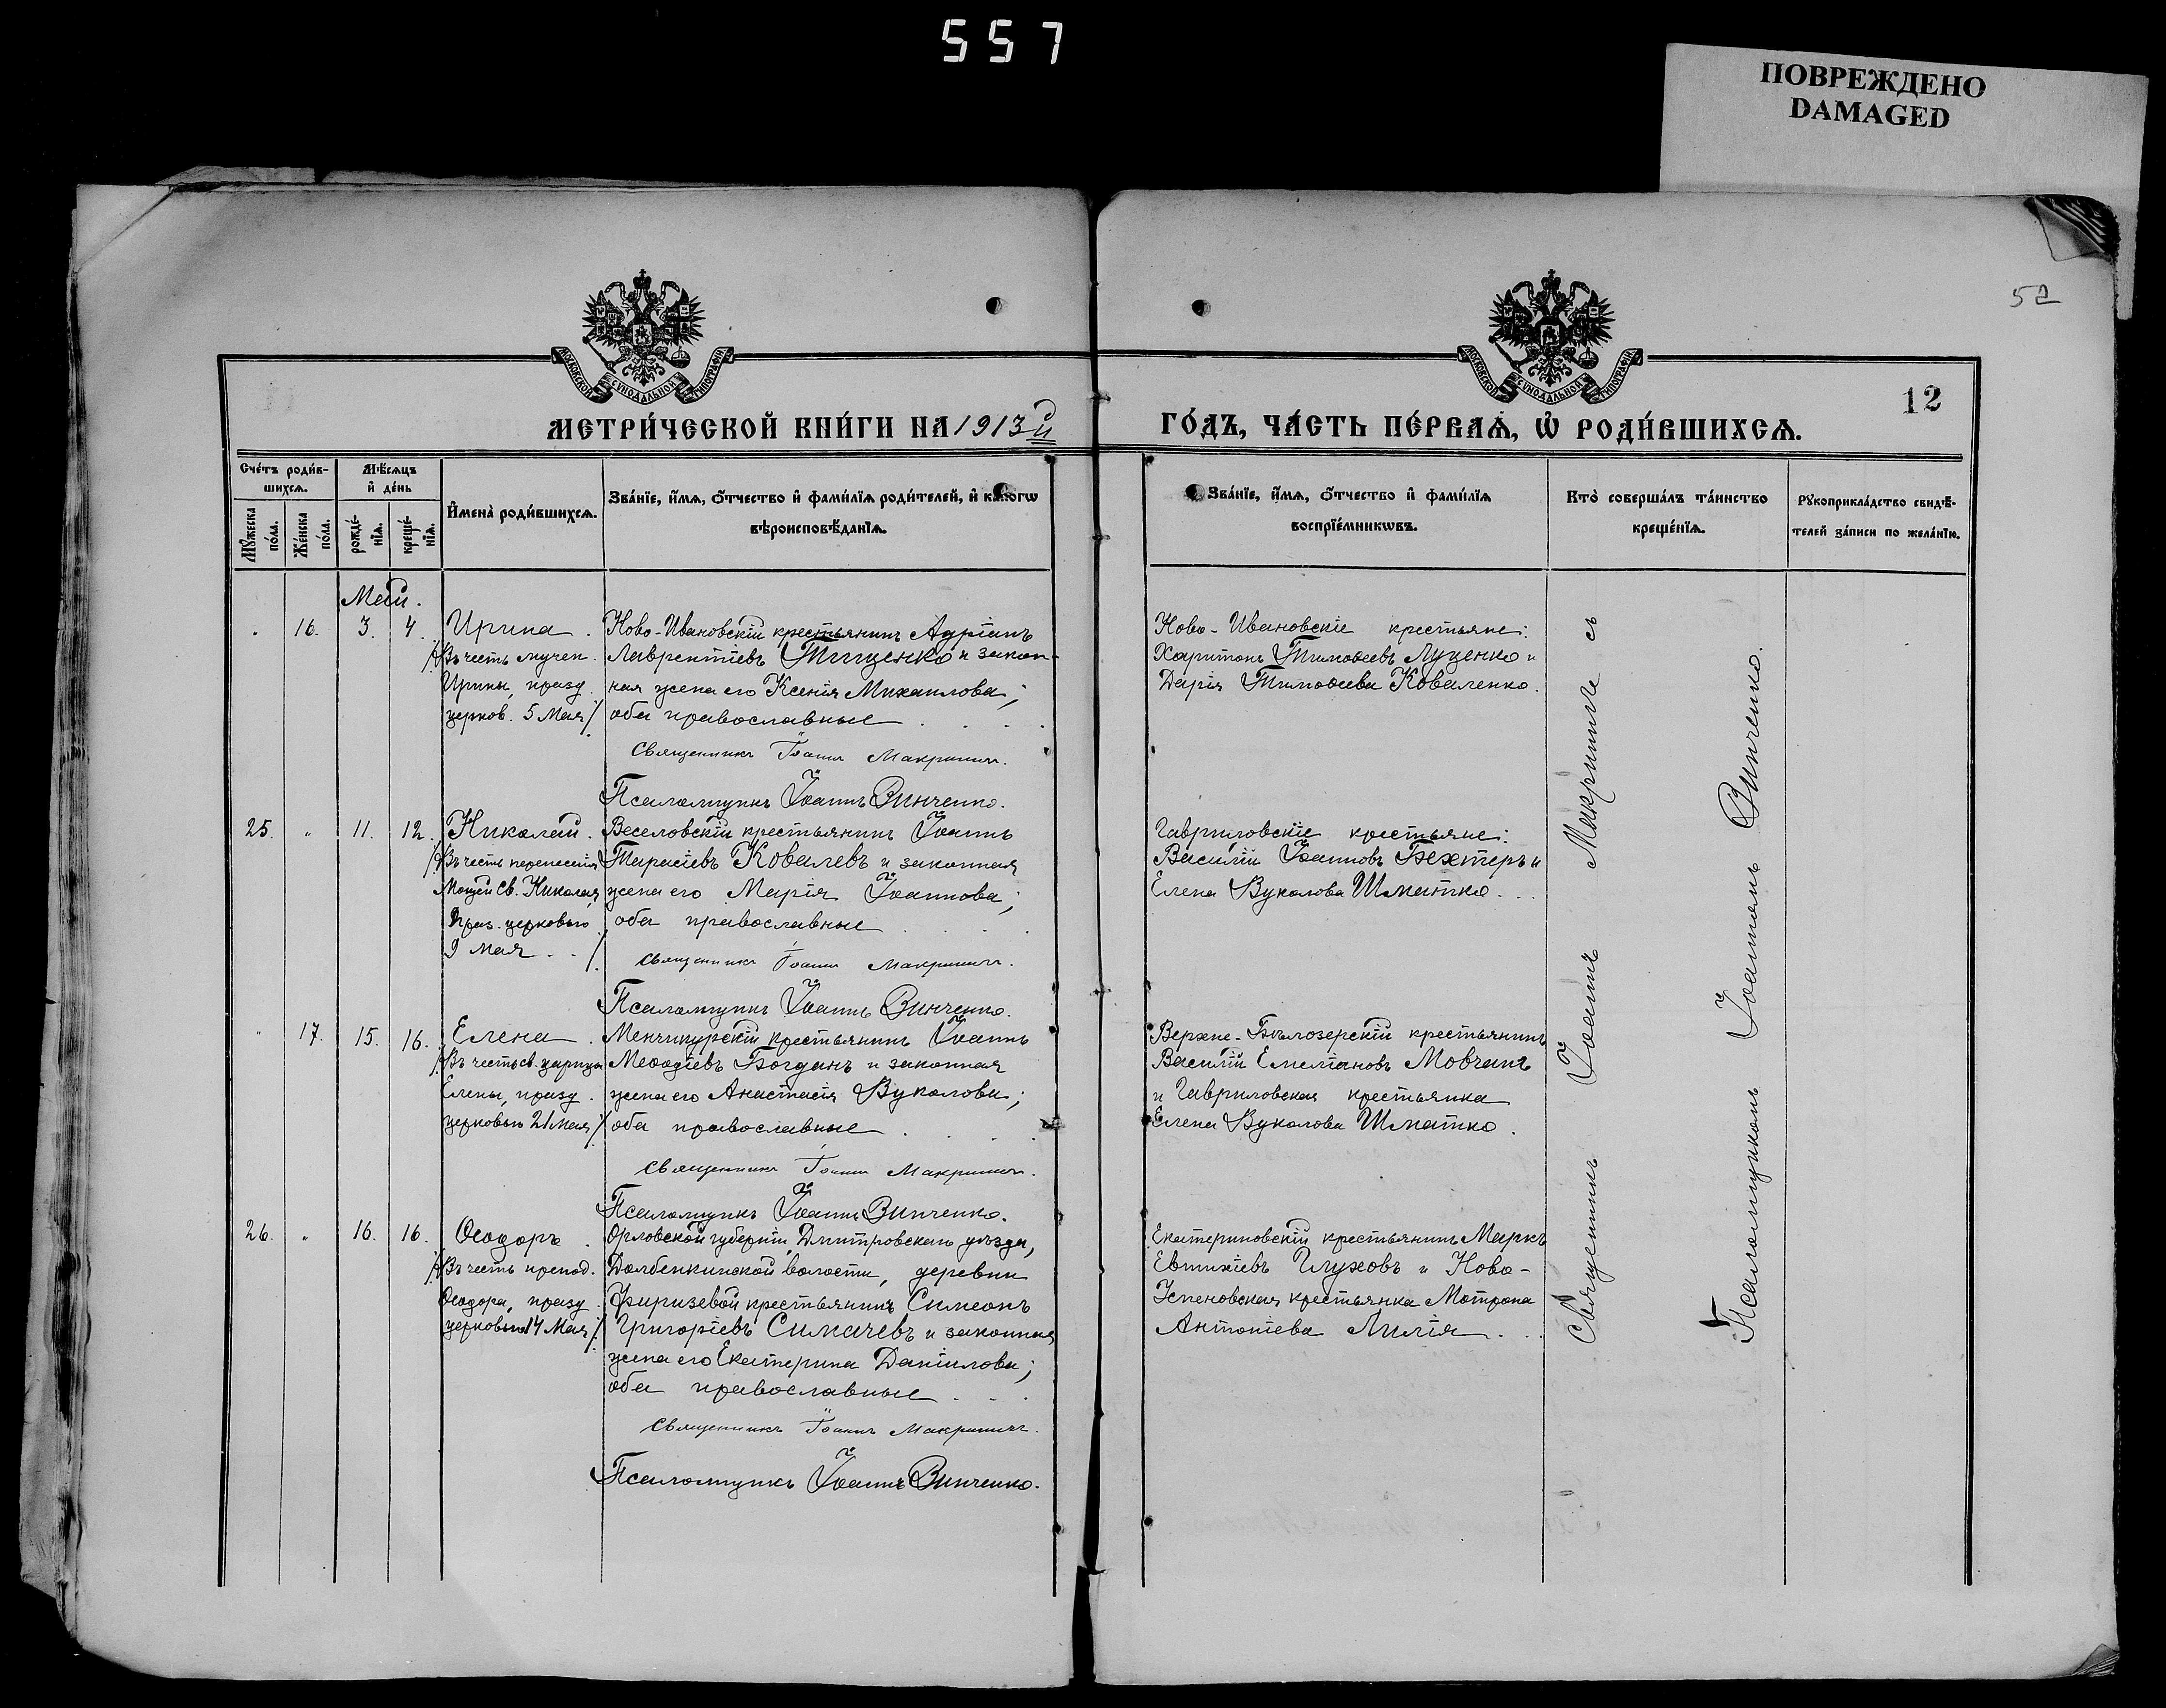 557
ПОВРЕЖДЕНО
DAMAGED
52
12
МОСКОВСКОЙ СѴНОДАЛЬНОЙ ТИПОГРАФІИ
МОСКОВСКОЙ СѴНОДАЛЬНОЙ ТИПОГРАФІИ
МЕТРИ́ЧЕСКОЙ КНИ́ГИ НА 1913й
ГО́ДЪ, ЧА́СТЬ ПЕ́РВАѦ, Ѡ҆ РОДИ́ВШИХСѦ.
Сче́тъ роди́в-
шихсѧ.
Мѣ́сѧцъ
и҆ де́нь
Мꙋ́жеска
по́ла.
Же́нска
по́ла.
рожде́-
нїѧ.
креще́-
нїѧ.
И҆мена̀ роди́вшихсѧ.
Зва́нїе, и҆́мѧ, ѻ҆́тчество и҆ фами́лїѧ роди́телей, и҆ како́гѡ
вѣроисповѣ́данїѧ.
Зва́нїе, и҆́мѧ, ѻ҆́тчество и҆ фами́лїѧ
воспрїе́мникѡвъ.
Кто̀ соверша́лъ та́инство
креще́нїѧ.
Рꙋкоприкла́дство свидѣ́-
телей за́писи по жела́нїю.
Май.
" 16. 3. 4. Ирина.
/Въ честь мучен.
Ирины, празд.
церков. 5 Мая/.
Ново-Ивановскій крестьянинъ Адріанъ
Лаврентіевъ Тищенко и закон-
ная жена его Ксенія Михаилова;
оба православные
Священникъ Іоаннъ Макриничъ.
Псаломщикъ Іоаннъ Винченко.
Ново-Ивановскіе крестьяне:
Харитонъ Тимоѳеевъ Луценко и
Дарія Тимоѳеева Коваленко.
25. " 11. 12. Николай.
/Въ честь перенесенія
Мощей Св. Николая,
Праз. церковью
9 Мая/.
Веселовскій крестьянинъ Іоаннъ
Тарасіевъ Ковалевъ и законная
жена его Марія Іоаннова;
оба православные
Священникъ Іоаннъ Макриничъ.
Псаломщикъ Іоаннъ Винченко.
Гавриловскіе крестьяне:
Василій Іоанновъ Бехтеръ и
Елена Вуколова Шматко.
" 17. 15. 16. Елена.
/Въ честь св. царицы
Елены, празд.
церковью 21 Мая/.
Менчикурскій крестьянинъ Іоаннъ
Меѳодіевъ Богданъ и законная
жена его Анастасія Вуколова;
оба православные
Священникъ Іоаннъ Макриничъ.
Псаломщикъ Іоаннъ Винченко.
Верхне-Бѣлозерскій крестьянинъ
Василій Емеліановъ Мовчанъ
и Гавриловская крестьянка
Елена Вуколова Шматко.
26. " 16. 16. Ѳеодоръ.
/Въ честь препод.
Ѳеодора, празд.
церковью 14 Мая/.
Орловской губерніи, Дмитровскаго уѣзда,
Долбенкинской волости, деревни
Фиризевой крестьянинъ Симеонъ
Григоріевъ Симачевъ и законная
жена его Екатерина Даніилова;
оба православные
Священникъ Іоаннъ Макриничъ.
Псаломщикъ Іоаннъ Винченко.
Екатериновскій крестьянинъ Маркъ
Евтихіевъ Глуховъ и Ново-
Успеновская крестьянка Мотрона
Антоніева Лилія.
Священникъ Іоаннъ Макриничъ съ
Псаломщикомъ Іоанномъ Винченко.